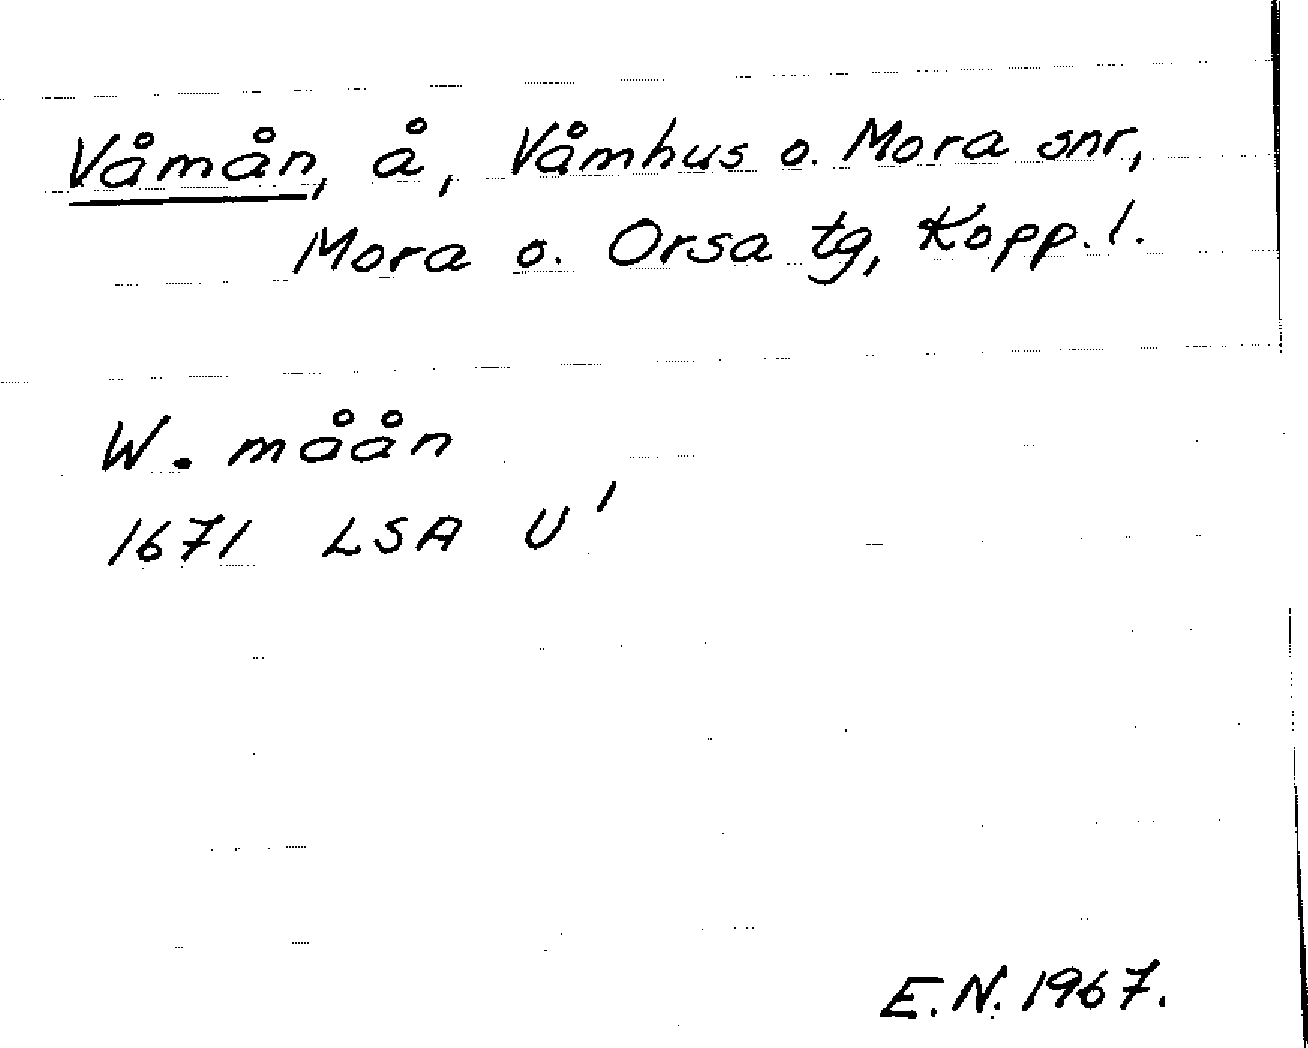 Våmån, å, Våmhus o. Mora snr,
Mora o. Orsa tg, Kopp. l.
W. måån
1671 LSA U'
E.N. 1967.